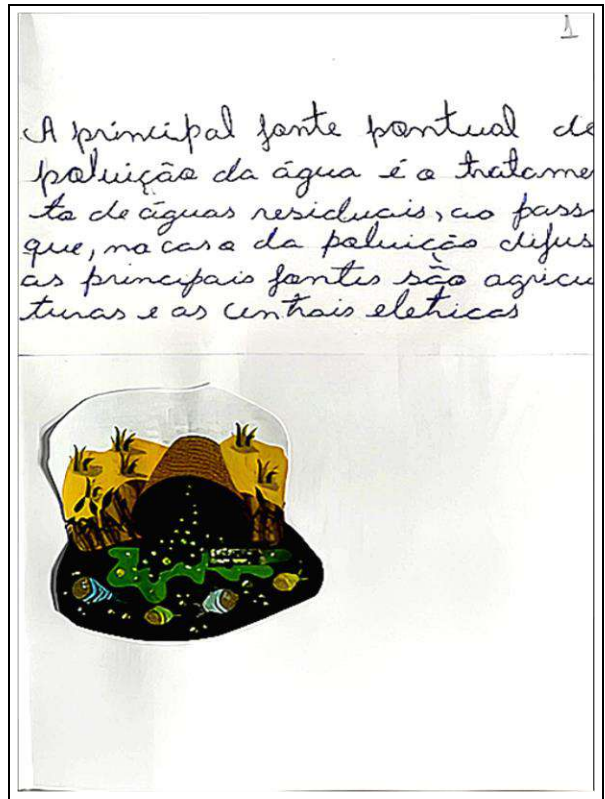 1
A principal fonte pontual de
poluição da água é o tratame
to de águas residuais, ao pass
que, no caso da poluição difus
as principais fontes são agricu
turas e as centrais eletricas